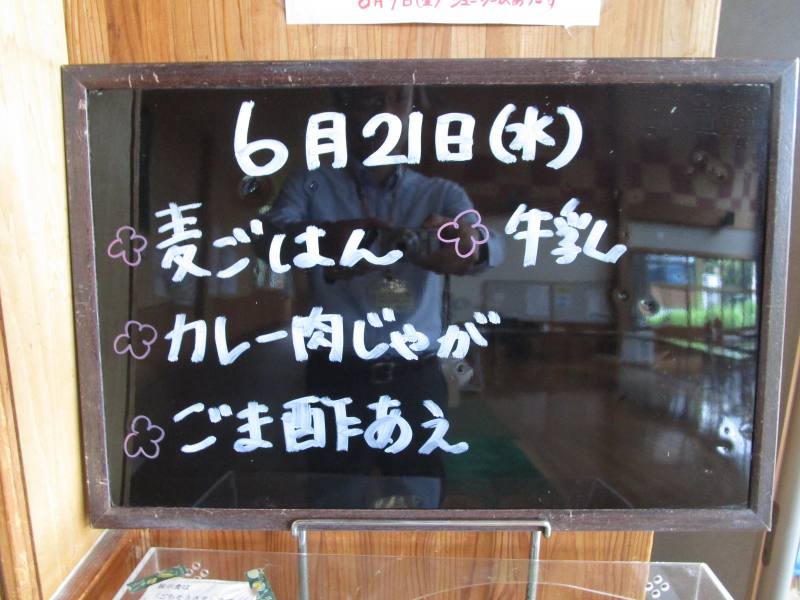 6月21日(水)
麦ごはん 牛乳
カレー肉じゃが
ごま酢あえ